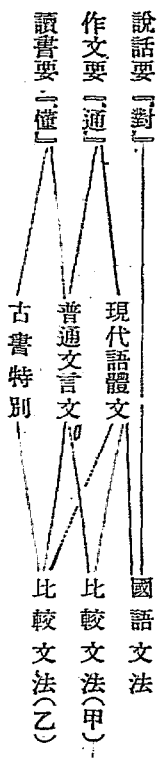 說話要『對』
作文要『通』
讀書要『懂』
現代語體文
普通文言文
古書特別
國語文法
比較文法（甲）
比較文法（乙）